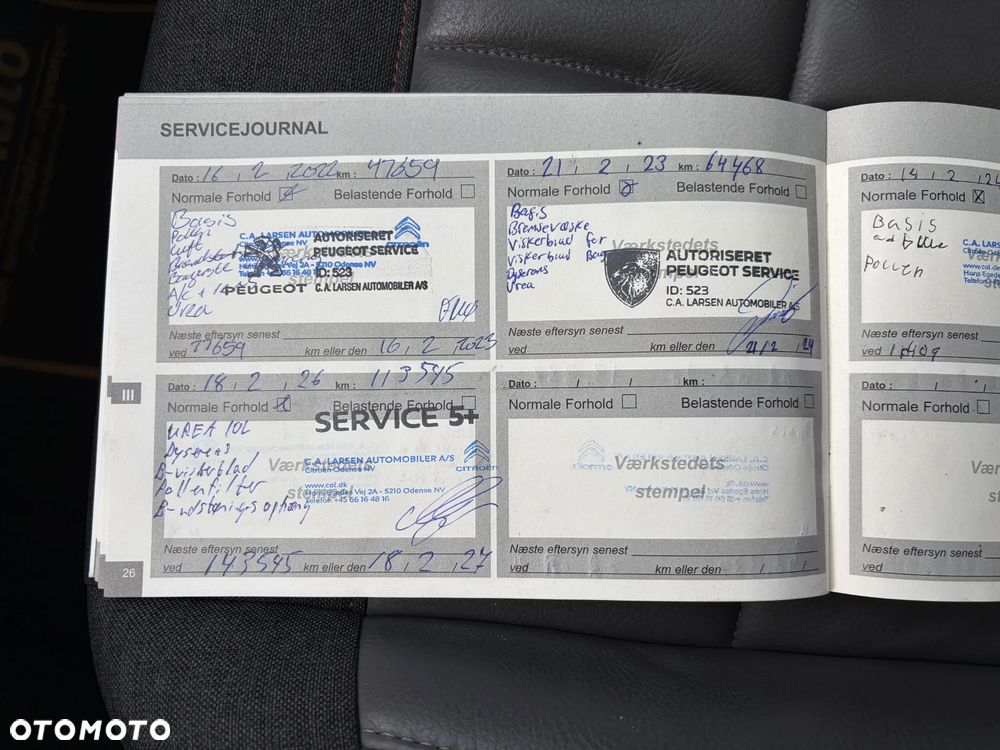 SERVICEJOURNAL
Dato : 16 , 2 , 2022 km : 47659
Normale Forhold Belastende Forhold
Basis
Pollen
Luft
A/C +
Urea
C.A. LARSEN AUTOMOBILER
Citroën Odense NV
5210 Odense NV
AUTORISERET
PEUGEOT SERVICE
ID: 523
C.A. LARSEN AUTOMOBILER A/S
PEUGEOT
CITROËN
Værkstedets
stempel
Næste eftersyn senest
ved 77659 km eller den 16 , 2 , 2023
Dato : 21 , 2 , 23 km : 64468
Normale Forhold Belastende Forhold
Basis
Bremsevæske
Viskerblad for
Viskerblad Bag
Dyserens
Urea
Værkstedets
stempel
AUTORISERET
PEUGEOT SERVICE
ID: 523
C.A. LARSEN AUTOMOBILER A/S
Næste eftersyn senest
ved km eller den 21/2 , 24
Dato : 14 , 2 , 24
Normale Forhold X
Basis
Pollen
C.A. L
Citroën Odens
www.cal.dk
Hans Egedes
Telefon
Næste eftersyn senest
ved
III
Dato : 18 , 2 , 26 km : 113545
Normale Forhold Belastende Forhold
SERVICE 5+
UREA 10L
Dyserens
B-viskerblad
Pollenfilter
C.A. LARSEN AUTOMOBILER A/S
Citroën Odense NV
www.cal.dk
Hans Egedes Vej 2A - 5210 Odense NV
Telefon +45 66 16 48 16
CITROËN
Værkstedets
stempel
Næste eftersyn senest
ved 143545 km eller den 18 , 2 , 27
Dato : / / km :
Normale Forhold Belastende Forhold
Værkstedets
stempel
Næste eftersyn senest
ved km eller den / /
Dato : / /
Normale Forhold
Næste eftersyn senest
ved
26
OTOMOTO